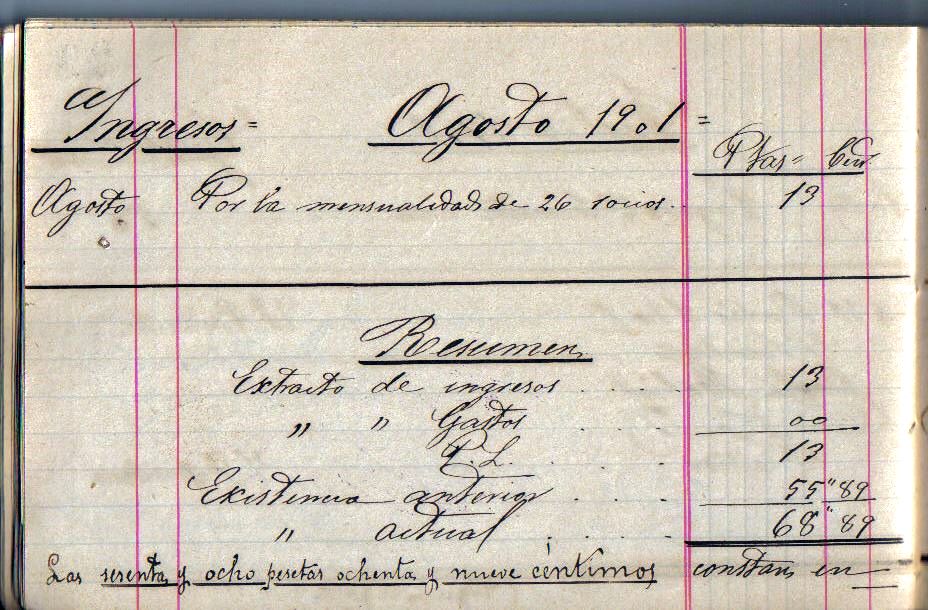 Ingresos = Agosto 1901 =
Ptas = Cen.
Agosto Por la mensualidad de 26 socios. 13
Resumen
Extracto de ingresos . . . . 13
" " Gastos . . . 00
P. L. . . . . 13
Existencia anterior . . . . 55"89
" actual . . . . 68"89
Las sesenta y ocho pesetas ochenta y nueve céntimos constan en